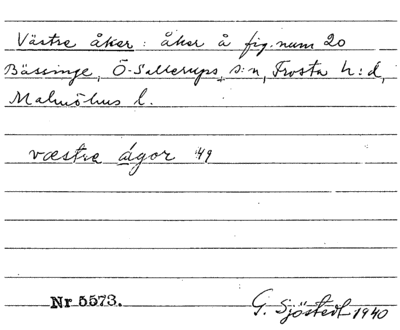 Västra åker: åker å fig. num 20
Bässinge, Ö-Sallerups s:n, Frosta h:d,
Malmöhus l.
væstra ágor 49
Nr 5573.
G. Sjöstedt 1940